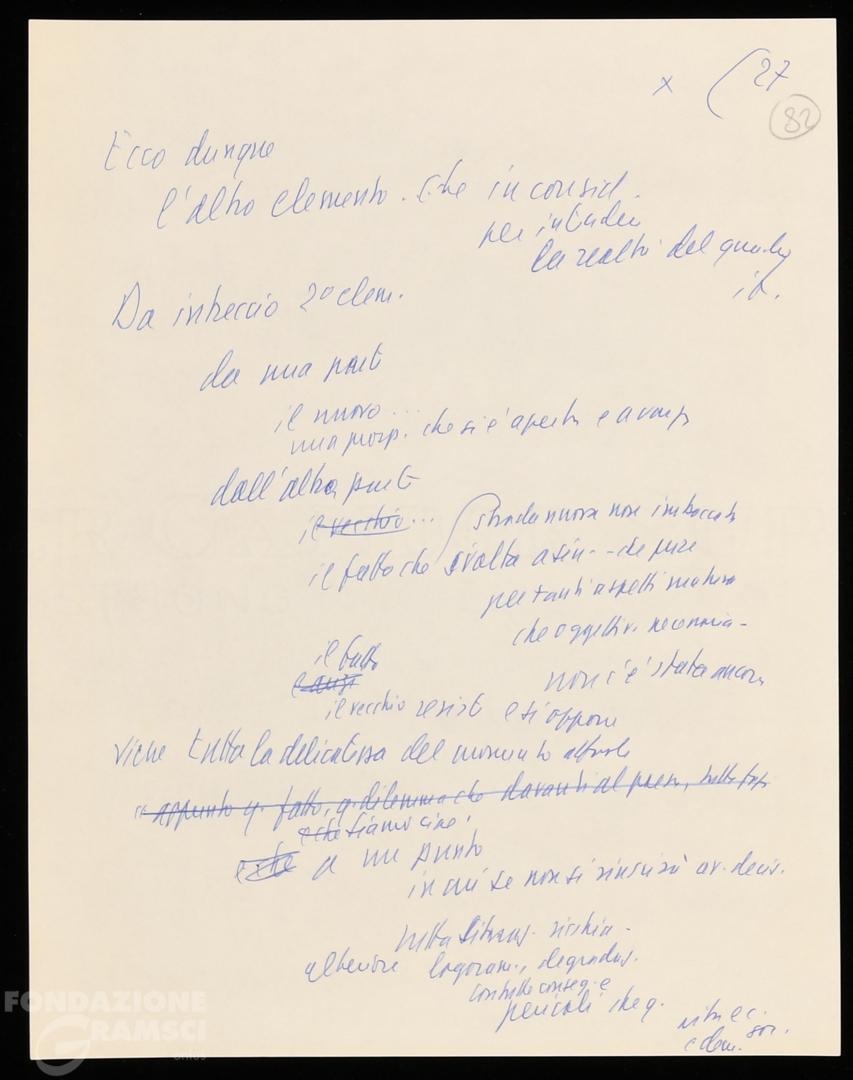 x (27
82
Ecco dunque
l'altro elemento. Che in consid.
per intender
la realtà del quale
it.
Da intreccio 2 elem.
da una parte
il nuovo...
una prosp. che si è aperta e avanza
dall'altra parte
il vecchio... strada nuova non imboccata
il fatto che svolta a sin. - che pure
per tanti aspetti matura
che oggettiv. necessaria -
non c'è stata ancora
il fatto
il vecchio resiste e si oppone
Viene tutta la delicatezza del momento attuale
appunto q. fatto, q. dilemma che davanti al paese, tutte
e che siamo cioè!
e che a un punto
in cui se non si av. decis.
tutta situaz. rischia -
ulteriore logoram., degradaz.
con tutte conseg. e
pericoli che q.
vita ec.
e dem. soc.